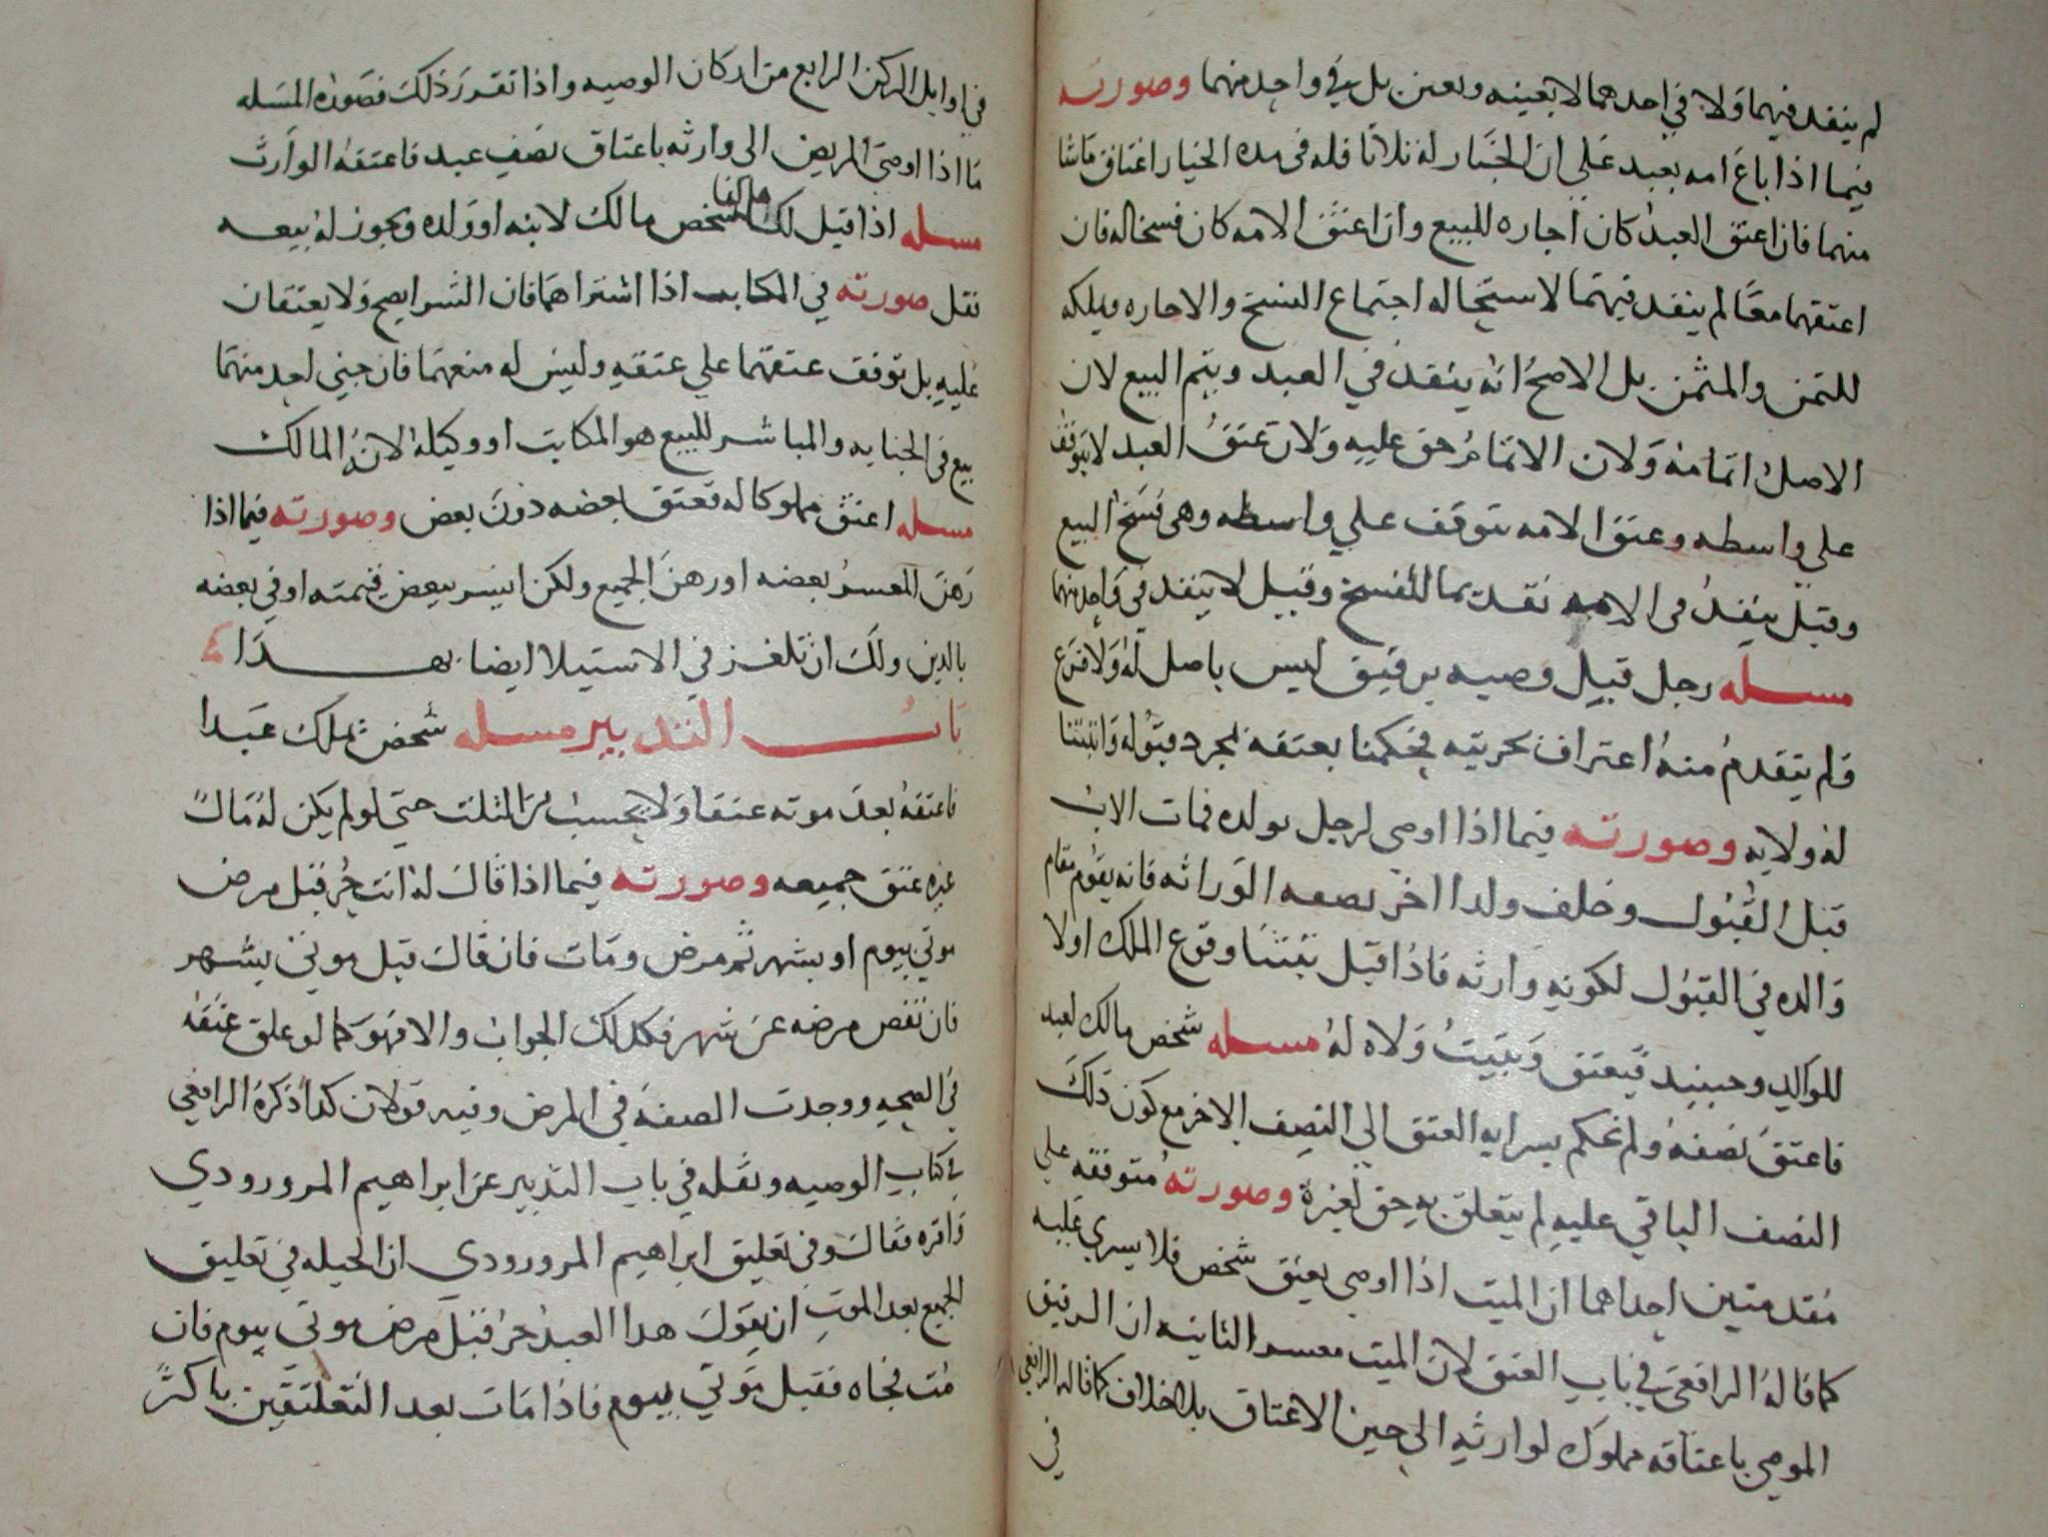 لم ينفد فيهما ولا في احدهما لا بعينه وبعين بل في واحد منهما وصورته
فيما اذا باع امه بعبد على ان الخيار له ثلاثا فله في مده الخيار اعتاق ماشا
منهما فان اعتق العبد كان اجاره للبيع وان اعتق الامه كان فسخا له فان
اعتقهما معا لم ينفد فيهما لاستحاله اجتماع الفسخ والاجاره ويملكه
للثمن والمثمن بل الاصح انه ينفد في العبد ويتم البيع لان
الاصل اتمامه ولان الاتمام حق عليه ولان عتق العبد لا يتوقف
على واسطه وعتق الامه يتوقف على واسطه وهى فسخ البيع
وقيل ينفد في الامه تقديما للفسخ وقيل لا ينفد في واحد منهما
مسله رجل قبل وصيه برقيق ليس باصل له ولا فرع
ولم يتقدم منه اعتراف بحريته فحكمنا بعتقه بمجرد قبوله واثبتنا
له ولايه وصورته فيما اذا اوصى لرجل بولده فمات الاب
قبل القبول وخلف ولدا اخر بصفه الوراثه فانه يقوم مقام
والده في القبول لكونه وارثه فاذا قبل تبينا وقوع الملك اولا
للوالد وحينيد فيعتق ويثبت ولاه له مسله شخص مالك لعبد
فاعتق نصفه ولم نحكم بسرايه العتق الى النصف الاخر مع كون ذلك
النصف الباقي عليه لم يتعلق به حق لغيره وصورته متوقفه على
مقدمتين احداهما ان الميت اذا اوصى بعتق شخص فلا يسري عليه
كما قاله الرافعي في باب العتق لان الميت معسر الثانيه ان الرقيق
الموصى باعتاقه مملوك لوارثه الى حين الاعتاق بلا خلاف كما قاله الرافعي
في
في اوايل الركن الرابع من اركان الوصيه واذا تقرر ذلك فصوره المسله
ما اذا اوصى المريض الى وارثه باعتاق نصف عبد فاعتقه الوارث
مسله اذا قيل لك شخص مالك لابنه او ولده ويجوز له بيعه
فقل صورته في المكاتب اذا اشتراهما فان الشرا يصح ولا يعتقان
عليه بل توقف عتقهما على عتقه وليس له منعهما فان جنى احد منهما
بيع في الجنايه والمباشر للبيع هو المكاتب او وكيله لانه المالك
مسله اعتق مملوكا له فعتق بعضه دون بعض وصورته فيما اذا
رهن المعسر بعضه او رهن الجميع ولكن ايسر ببعض قيمته اوفى بعضه
بالدين ولك ان تلغز في الاستيلا ايضا بهذا
باب التدبير مسله شخص يملك عبدا
فاعتقه بعد موته عتقا ولا يحسب من الثلث حتى لو لم يكن له مال
غيره عتق جميعه وصورته فيما اذا قال له انت حر قبل مرض
موتي بيوم او بشهر ثم مرض ومات فان قال قبل موتي بشهر
فان نقص مرضه عن شهر فكذلك الجواب والا فهو كما لو علق عتقه
في الصحه ووجدت الصفه في المرض وفيه قولان كذا ذكره الرافعي
في كتاب الوصيه ونقله في باب التدبير عن ابراهيم المرورودي
واقره فقال وفي تعليق ابراهيم المرورودي ان الحيله في تعليق
الجميع بعد الموت ان يقول هذا العبد حر قبل مرض موتي بيوم فان
مت فجاه فقبل موتي بيوم فاذا مات بعد التعليقين باكثر